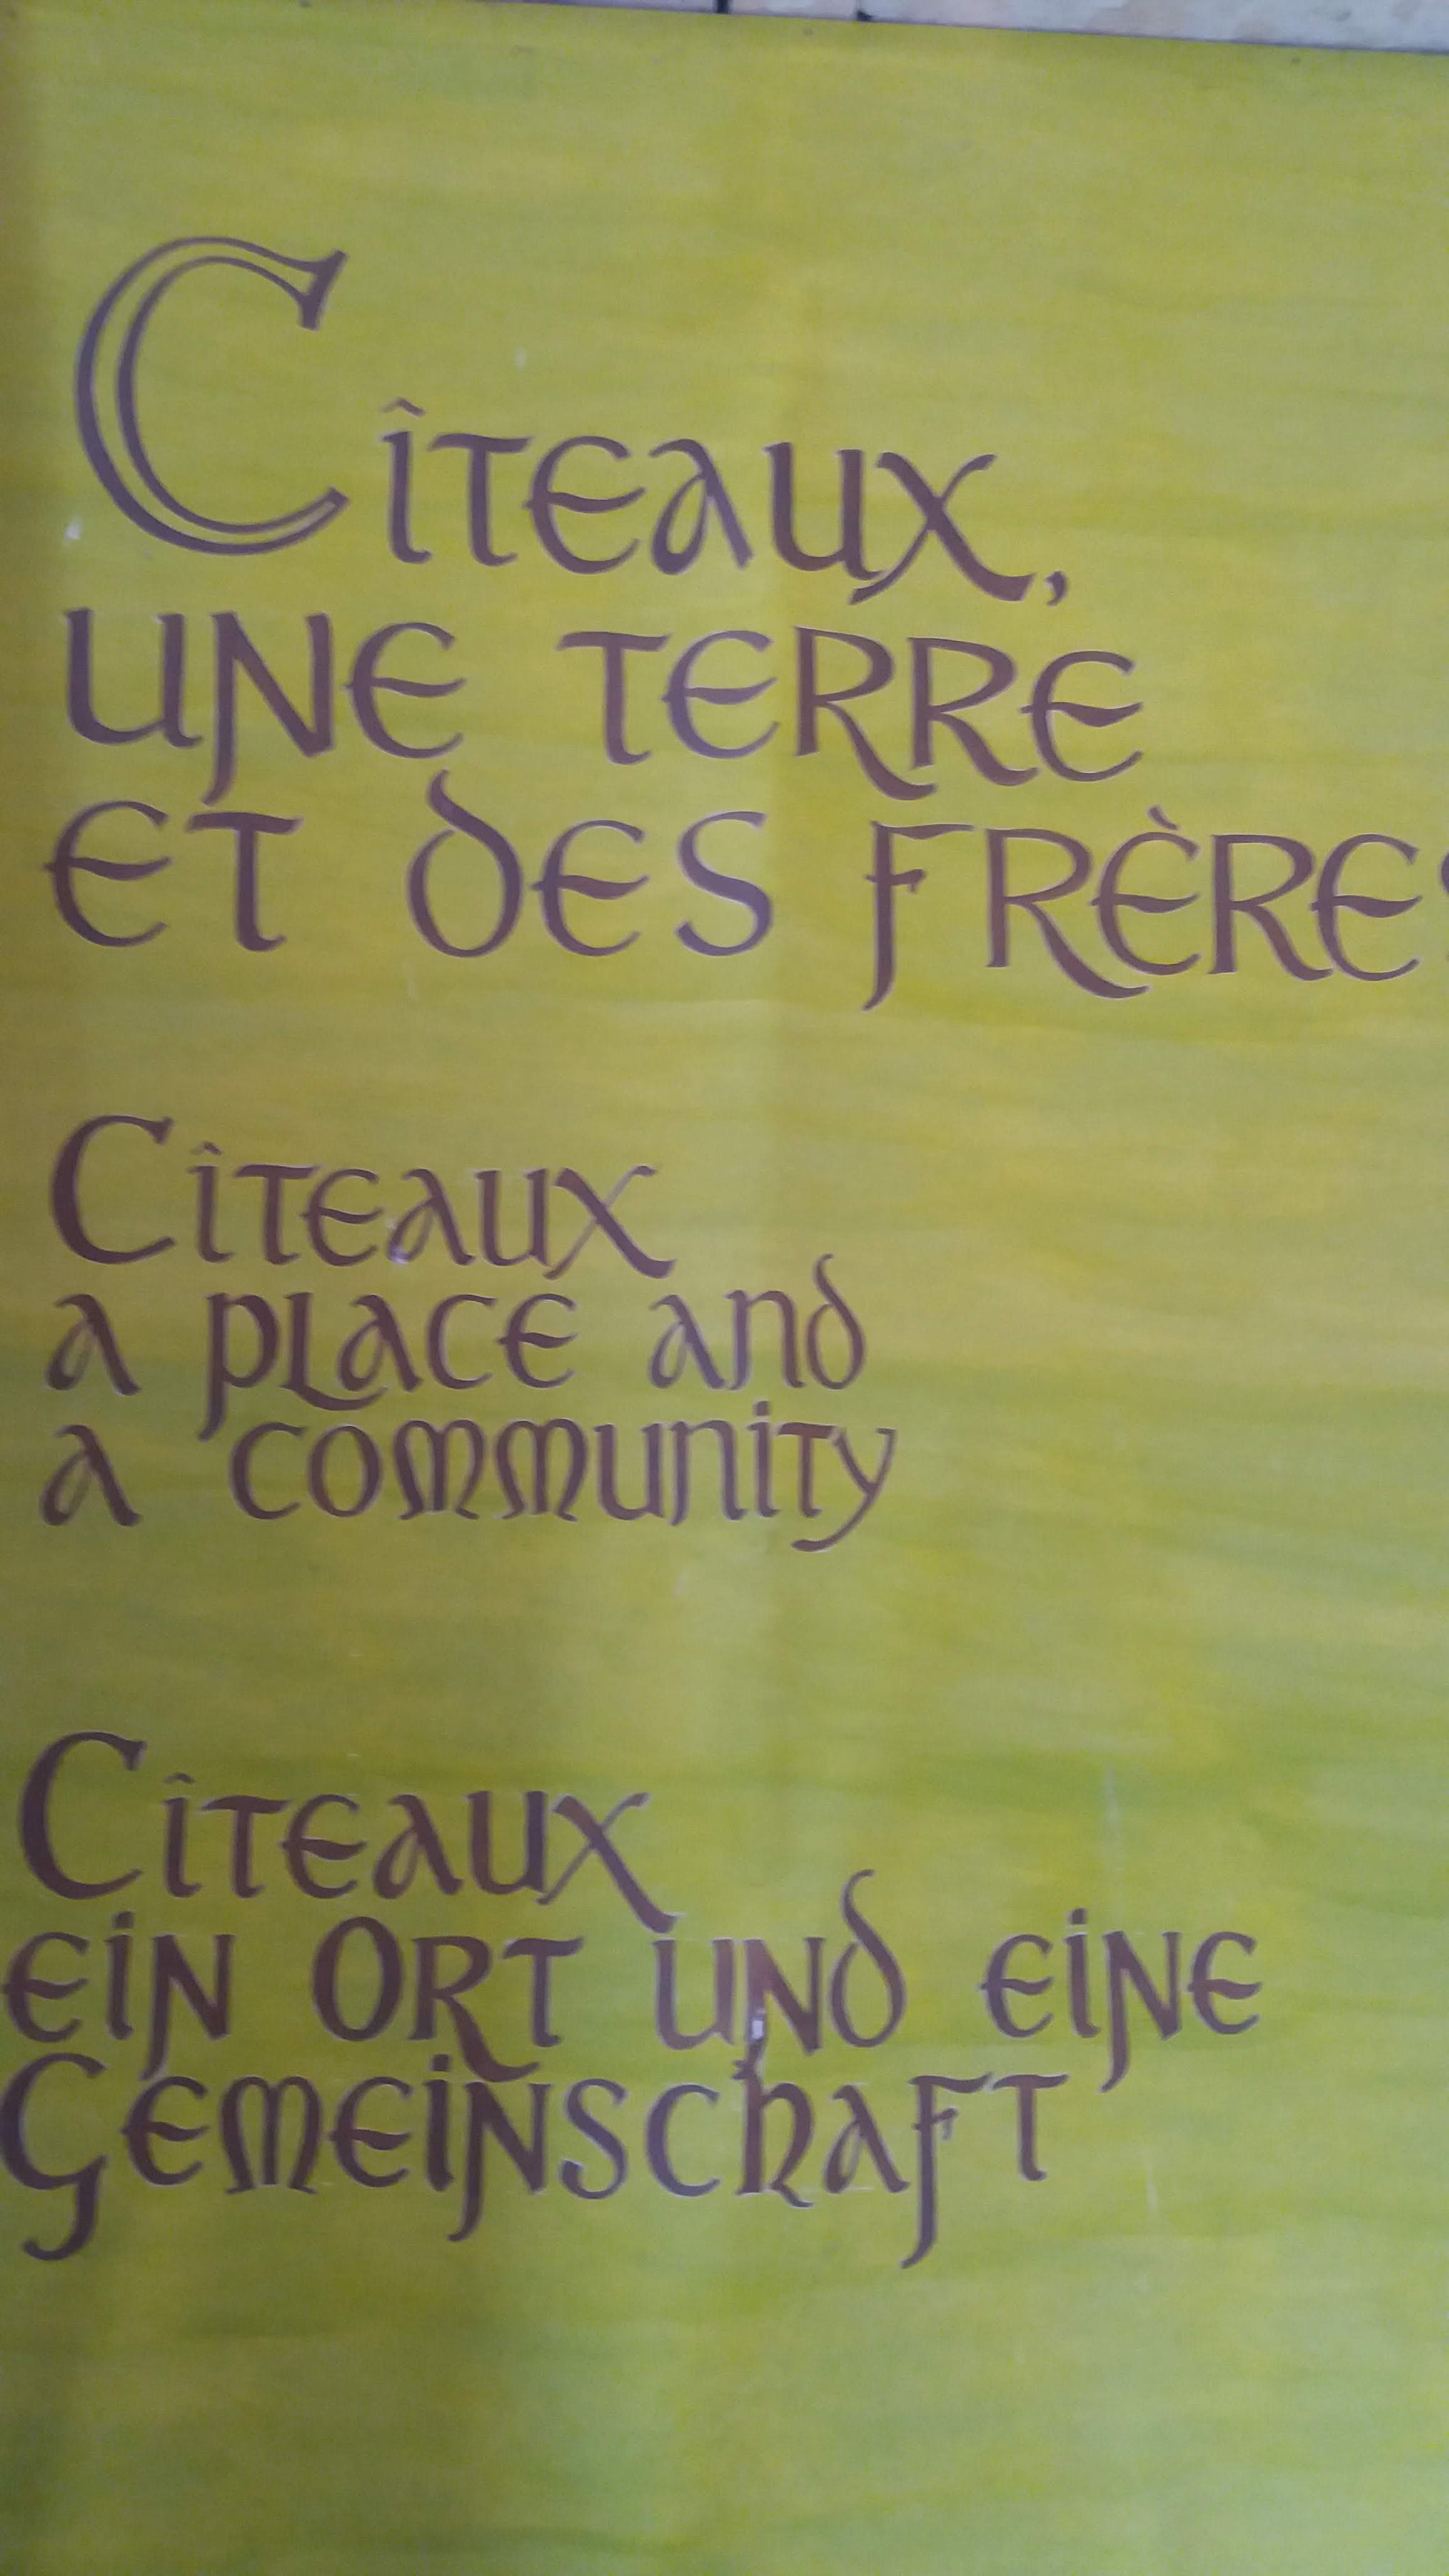 Cîteaux,
une terre
et des frères
Cîteaux
a place and
a community
Cîteaux
ein Ort und eine
Gemeinschaft